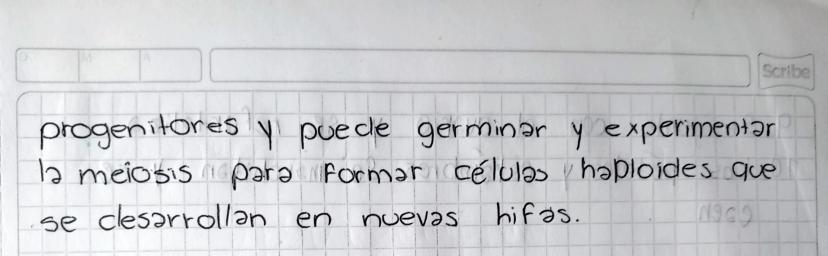 D M A
Scribe
progenitores y puede germinar y experimentar
la meiosis para formar células haploides que
se desarrollan en nuevas hifas.